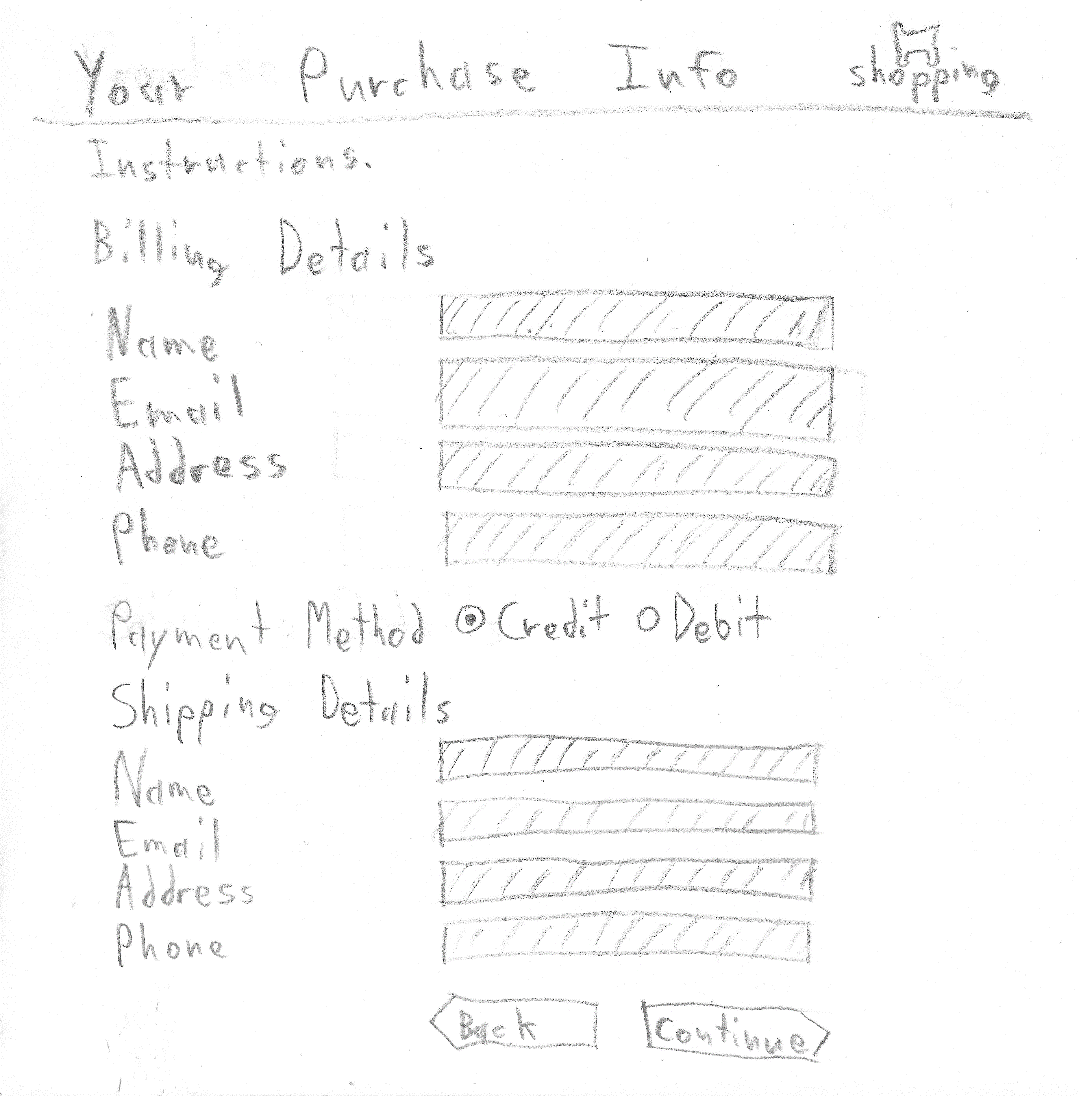 Your Purchase Info shopping
Instructions.
Billing Details
Name
Email
Address
Phone
Payment Method Credit Debit
Shipping Details
Name
Email
Address
Phone
Back Continue